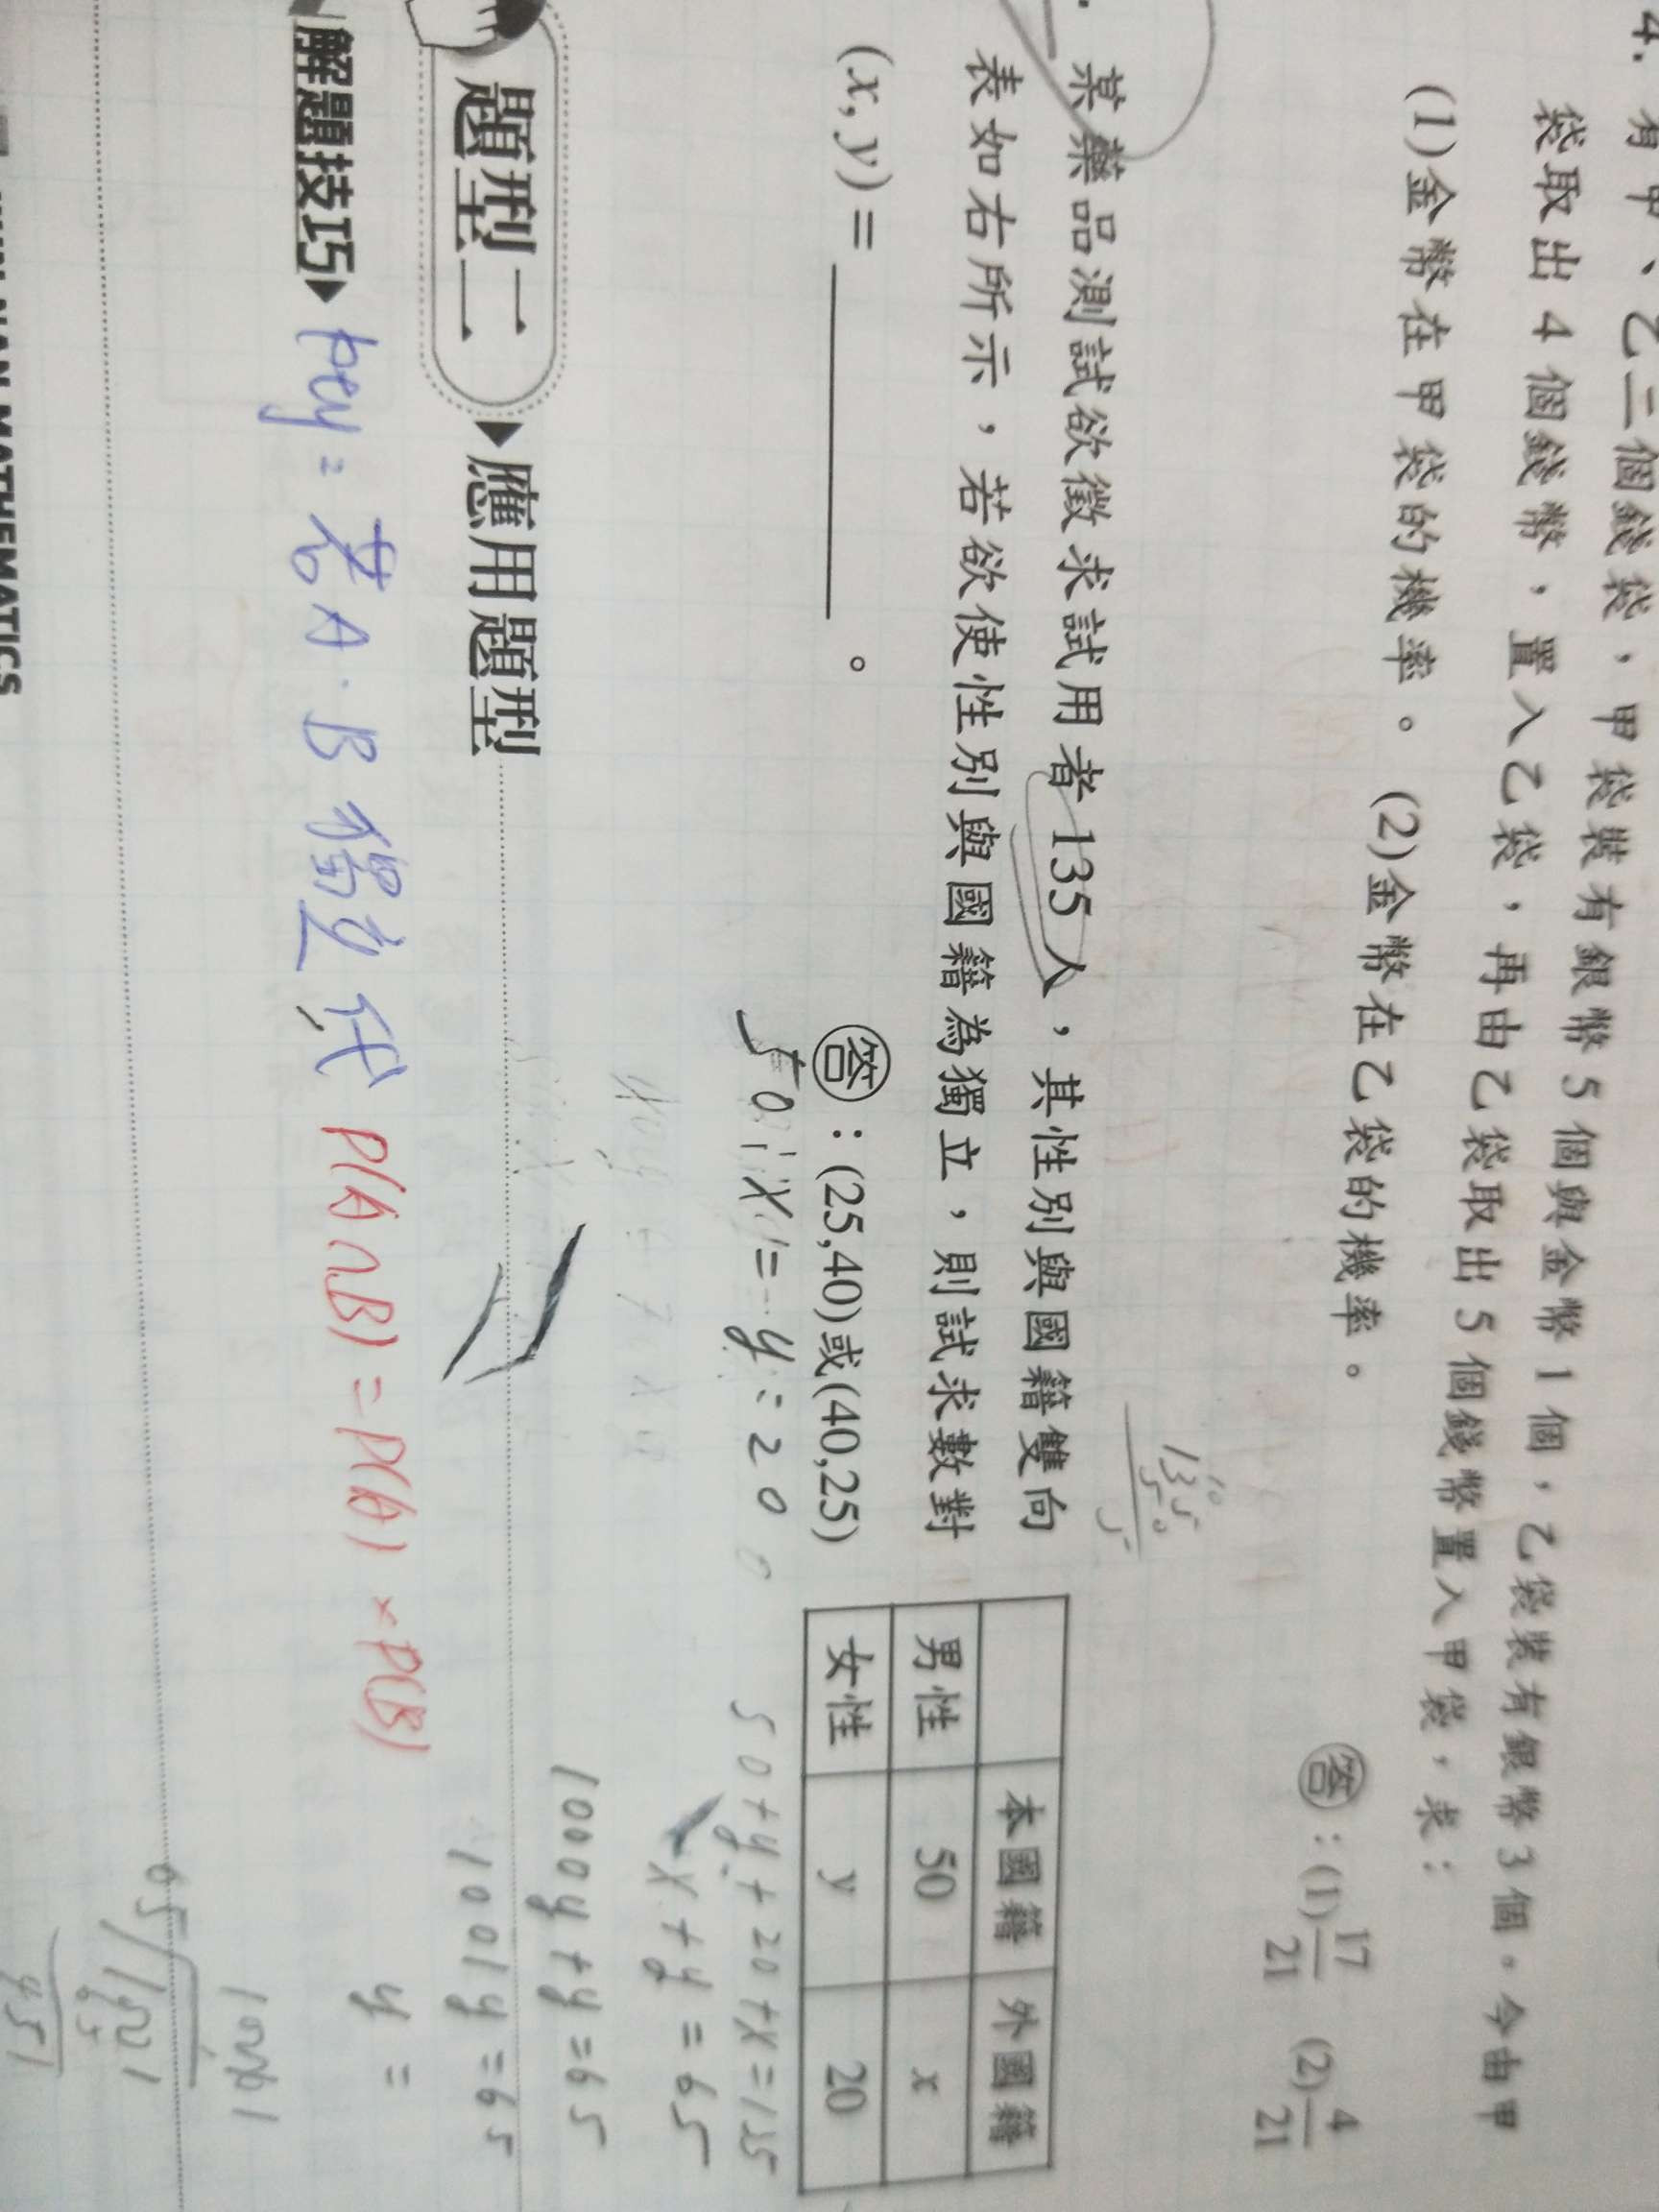 4. 有甲、乙二個錢袋，甲袋裝有銀幣5個與金幣1個，乙袋裝有銀幣3個。今由甲
袋取出4個錢幣，置入乙袋，再由乙袋取出5個錢幣置入甲袋，求：
(1)金幣在甲袋的機率。 (2)金幣在乙袋的機率。
答：(1)17/21 (2)4/21
135
50
5
某藥品測試欲徵求試用者135人，其性別與國籍雙向
表如右所示，若欲使性別與國籍為獨立，則試求數對
(x, y) = ________ 。
答：(25,40)或(40,25)
本國籍 外國籍
男性 50 x
女性 y 20
50:x = y:20
50+y+20+x=135
x+y=65
1000y+y=65
1001y=65
y =
題型二 ▶應用題型
解題技巧▶ key: 若A、B獨立代 P(A∩B)=P(A)×P(B)
MATHEMATICS